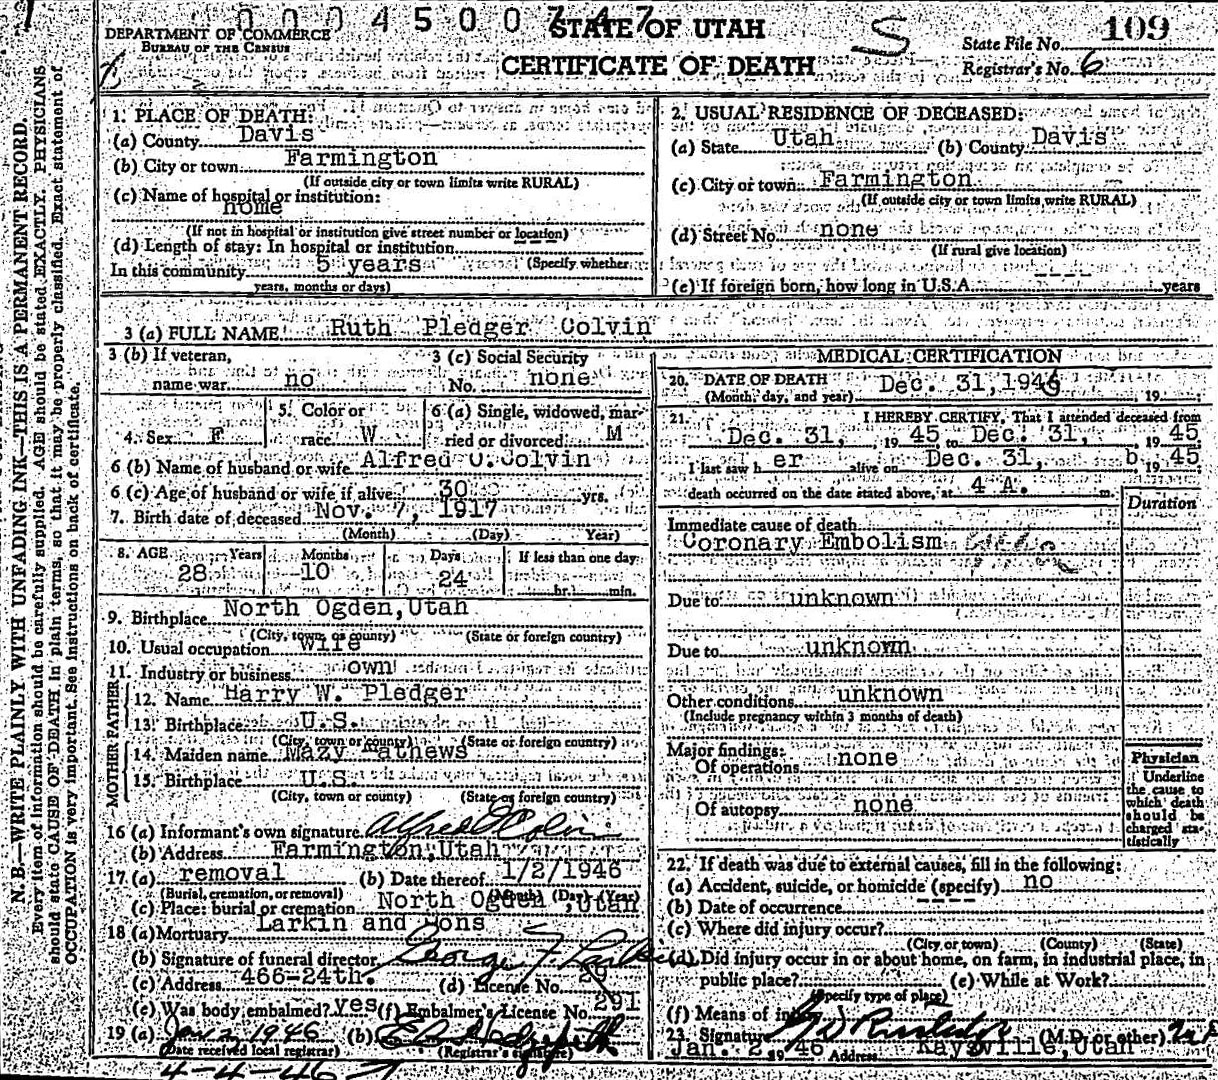 0 0 0 4 5 0 0 7 4 7
DEPARTMENT OF COMMERCE
BUREAU OF THE CENSUS
STATE OF UTAH
CERTIFICATE OF DEATH
S
State File No. 109
Registrar's No. 6
N. B.—WRITE PLAINLY WITH UNFADING INK—THIS IS A PERMANENT RECORD.
Every item of information should be carefully supplied. AGE should be stated EXACTLY. PHYSICIANS
should state CAUSE OF DEATH in plain terms, so that it may be properly classified. Exact statement of
OCCUPATION is very important. See instructions on back of certificate.
1. PLACE OF DEATH:
(a) County Davis
(b) City or town Farmington
(If outside city or town limits write RURAL)
(c) Name of hospital or institution:
home
(If not in hospital or institution give street number or location)
(d) Length of stay: In hospital or institution
(Specify whether
In this community 5 years
years, months or days)
2. USUAL RESIDENCE OF DECEASED:
(a) State Utah (b) County Davis
(c) City or town Farmington
(If outside city or town limits, write RURAL)
(d) Street No. none
(If rural give location)
(e) If foreign born, how long in U.S.A. ---- years
3 (a) FULL NAME Ruth Pledger Colvin
3 (b) If veteran,
name war no
3 (c) Social Security
No. none
4. Sex F
5. Color or
race W
6 (a) Single, widowed, mar-
ried or divorced M
6 (b) Name of husband or wife Alfred O. Colvin
6 (c) Age of husband or wife if alive 30 yrs.
7. Birth date of deceased Nov. 7, 1917
(Month) (Day) Year)
8. AGE Years Months Days If less than one day
28 10 24 hr. min.
9. Birthplace North Ogden, Utah
(City, town or county) (State or foreign country)
10. Usual occupation wife
11. Industry or business own
FATHER
12. Name Harry W. Pledger
13. Birthplace U.S.
(City, town or county) (State or foreign country)
MOTHER
14. Maiden name Mazy Mathews
15. Birthplace U.S.
(City, town or county) (State or foreign country)
16 (a) Informant's own signature Alfred O Colvin
(b) Address Farmington, Utah
17. (a) removal (b) Date thereof 1/2/1946
(Burial, cremation, or removal) (Month) (Day) (Year)
(c) Place: burial or cremation North Ogden, Utah
18 (a) Mortuary Larkin and Sons
(b) Signature of funeral director George F Larkin
(c) Address 466-24th. (d) License No. 29
(e) Was body embalmed? yes (f) Embalmer's License No. 291
19 (a) Jan 2, 1946 (b)
(Date received local registrar) (Registrar's signature)
4-4-46
MEDICAL CERTIFICATION
20. DATE OF DEATH Dec. 31, 1945
(Month, day, and year) 19
21. I HEREBY CERTIFY, That I attended deceased from
Dec. 31, 19 45 to Dec. 31, 19 45
I last saw her alive on Dec. 31, 19 45
death occurred on the date stated above, at 4 A. m.
Duration
Immediate cause of death
Coronary Embolism
Due to unknown
Due to unknown
Other conditions unknown
(Include pregnancy within 3 months of death)
Major findings:
Of operations none
Of autopsy none
Physician
Underline
the cause to
which death
should be
charged sta-
tistically
22. If death was due to external causes, fill in the following:
(a) Accident, suicide, or homicide (specify) no
(b) Date of occurrence ----
(c) Where did injury occur?
(City or town) (County) (State)
(d) Did injury occur in or about home, on farm, in industrial place, in
public place? (e) While at Work?
(Specify type of place)
(f) Means of injury
23. Signature (M.D. or other) M.D.
Jan. 2, 19 46 Address Kaysville, Utah